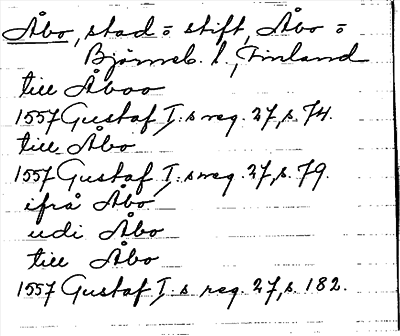 Åbo, stad = stift, Åbo =
Björneb. l., Finland
till Åboo
1557 Gustaf I:s reg. 27, s. 74.
till Åbo
1557 Gustaf I:s reg. 27, s. 79.
ifrå Åbo
udi Åbo
till Åbo
1557 Gustaf I:s reg. 27, s. 182.